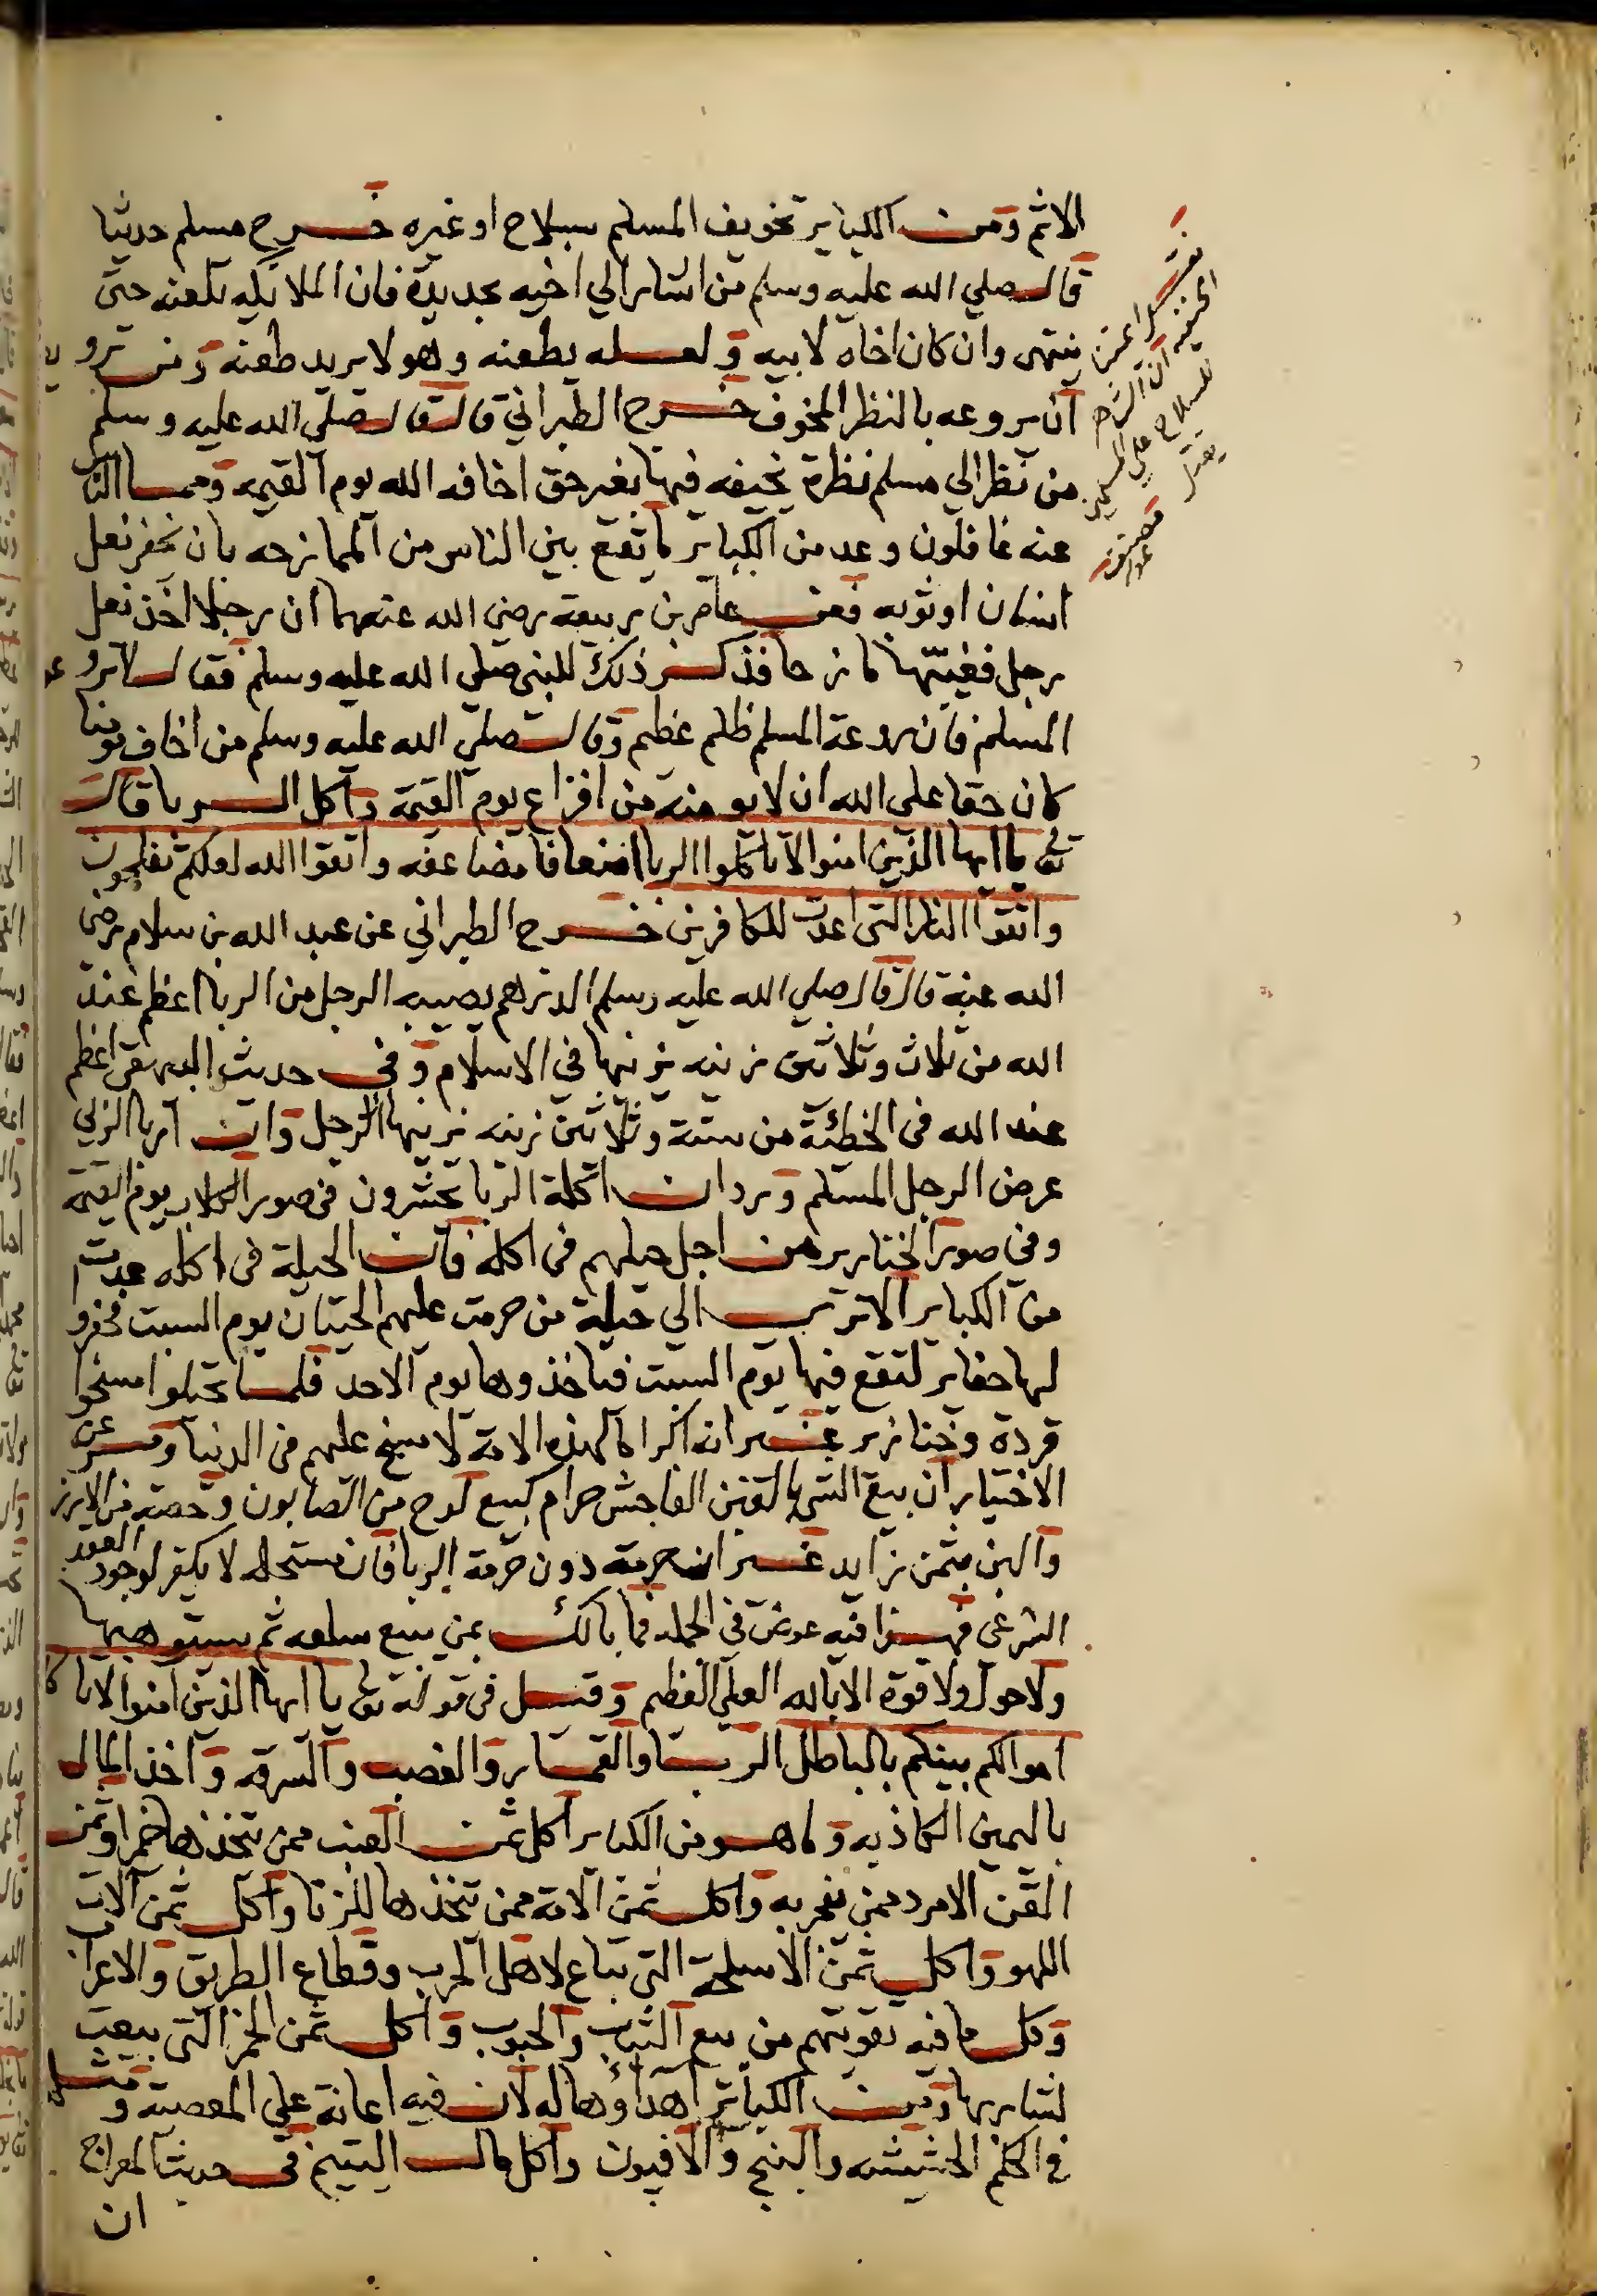 الاثم ومن الكباير تخويف المسلم بسلاح او غيره خرج مسلم حديثا
قال صلي الله عليه وسلم من اشار الي اخيه بحديدة فان الملايكه تلعنه حتى
ينتهى وان كان اخاه لابيه ولعله يطعنه وهو لا يريد طعنه ومن ترويعه
ان يروعه بالنظر المخوف خرج الطبراني قال قال صلى الله عليه وسلم
من نظر الي مسلم نظرة يخيفه فيها بغير حق اخافه الله يوم القيمه ومما الناس
عنه غافلون وعد من الكباير ما يقع بين الناس من الممازحه بان يخفى نعل
انسان او ثوبه فعن عامر بن ربيعة رضي الله عنهما ان رجلا اخذ نعل
رجل فغيبها مازحا فذكر ذلك للنبى صلي الله عليه وسلم فقال لا تروعوا
المسلم فان روعة المسلم ظلم عظيم وقال صلي الله عليه وسلم من اخاف مومنا
كان حقا على الله ان لا يومنه من افزاع يوم القيمة واكل الربا قال
تع يا ايها الذين امنوا لا تاكلوا الربا اضعافا مضاعفه واتقوا الله لعلكم تفلحون
واتقوا النار التى اعدت للكافرين خرج الطبراني عن عبد الله بن سلام رضي
الله عنه قال قال صلي الله عليه وسلم الدرهم يصيبه الرجل من الربا اعظم عند
الله من ثلاث وثلاثين زنيه يزنيها في الاسلام وفي حديث البيهقى اعظم
عند الله فى الخطئة من ستة وثلاثين زنيه يزنيها الرجل وان اربا الربي
عرض الرجل المسلم ورد ان اكلة الربا يحشرون فى صور الكلاب يوم القيمة
وفى صور الخنازير من اجل حيلهم فى اكله فان الحيلة فى اكله عدت
من الكباير الا ترى الى حيلة من حرمت عليهم الحيتان يوم السبت فحفروا
لها حفاير لتقع فيها يوم السبت فياخذوها يوم الاحد فلما تحيلوا مسخوا
قردة وخنازير غير انه اكراما لهذه الامة لا مسخ عليهم فى الدنيا وعن
الاختيار ان بيع الشى بالغبن الفاحش حرام كبيع لوح من الصابون وحصة من الارز
والبن بثمن زايد غير ان حرمة دون حرمة الربا فان مستحله لا يكفر لوجود العقد
الشرعى فهذا فيه عوض في الجمله فما بالك بمن يبيع سلعه ثم يستوهبها
ولا حول ولا قوة الا بالله العلي العظيم وقيل فى قوله تع يا ايها الذين امنوا لا تاكلوا
اموالكم بينكم بالباطل الربا والقمار والغصب والسرقه واخذ المال
باليمين الكاذبه وما هو من الكباير اكل ثمن العنب ممن يتخذها خمرا وثمن
القن الامرد ممن يفجر به واكل ثمن الامة ممن يتخذها للزنا واكل ثمن الات
اللهو واكل ثمن الاسلحة التى تباع لاهل الحرب وقطاع الطريق والاعراب
وكل ما فيه تقويتهم من بيع الثياب والحبوب واكل ثمن الخمر التى بيعت
لشاربها ومن الكباير اهداوها له لان فيه اعانة على المعصية ومثله
في الحكم الحشيشه والبنج والافيون واكل مال اليتيم فى حديث المعراج
ان